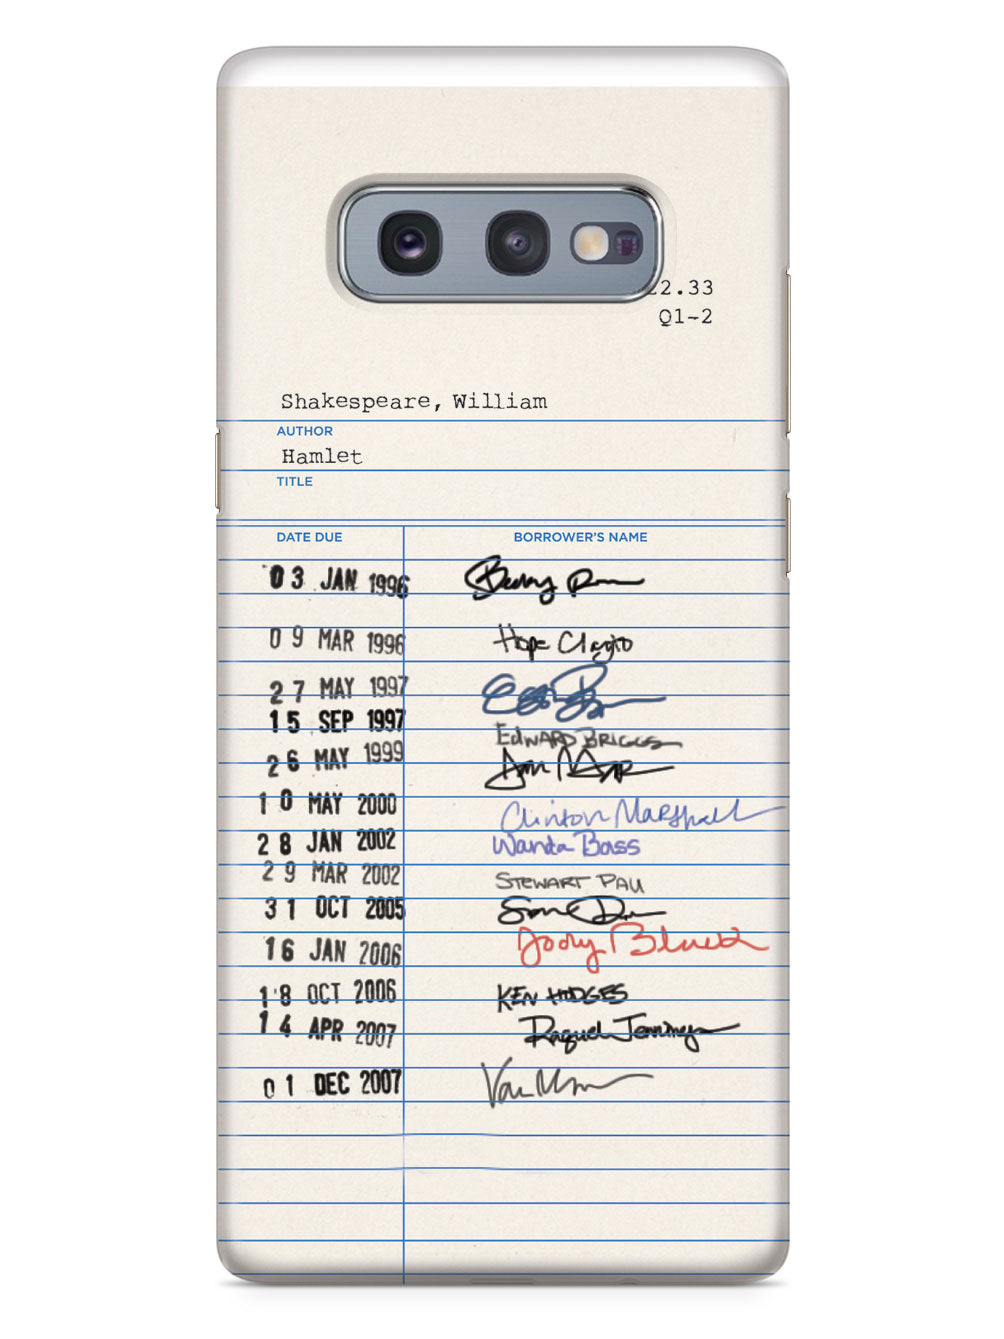 22.33
Q1-2
Shakespeare, William
AUTHOR
Hamlet
TITLE
DATE DUE BORROWER'S NAME
03 JAN 1996
09 MAR 1996 Hope
27 MAY 1997
15 SEP 1997 EDWARD BRIGGS
26 MAY 1999
10 MAY 2000 Clinton Marshall
28 JAN 2002 Wanda Bass
29 MAR 2002 STEWART PAU
31 OCT 2005
16 JAN 2006 Jody
18 OCT 2006 KEN HODGES
14 APR 2007 Raquel Jennings
01 DEC 2007 Van